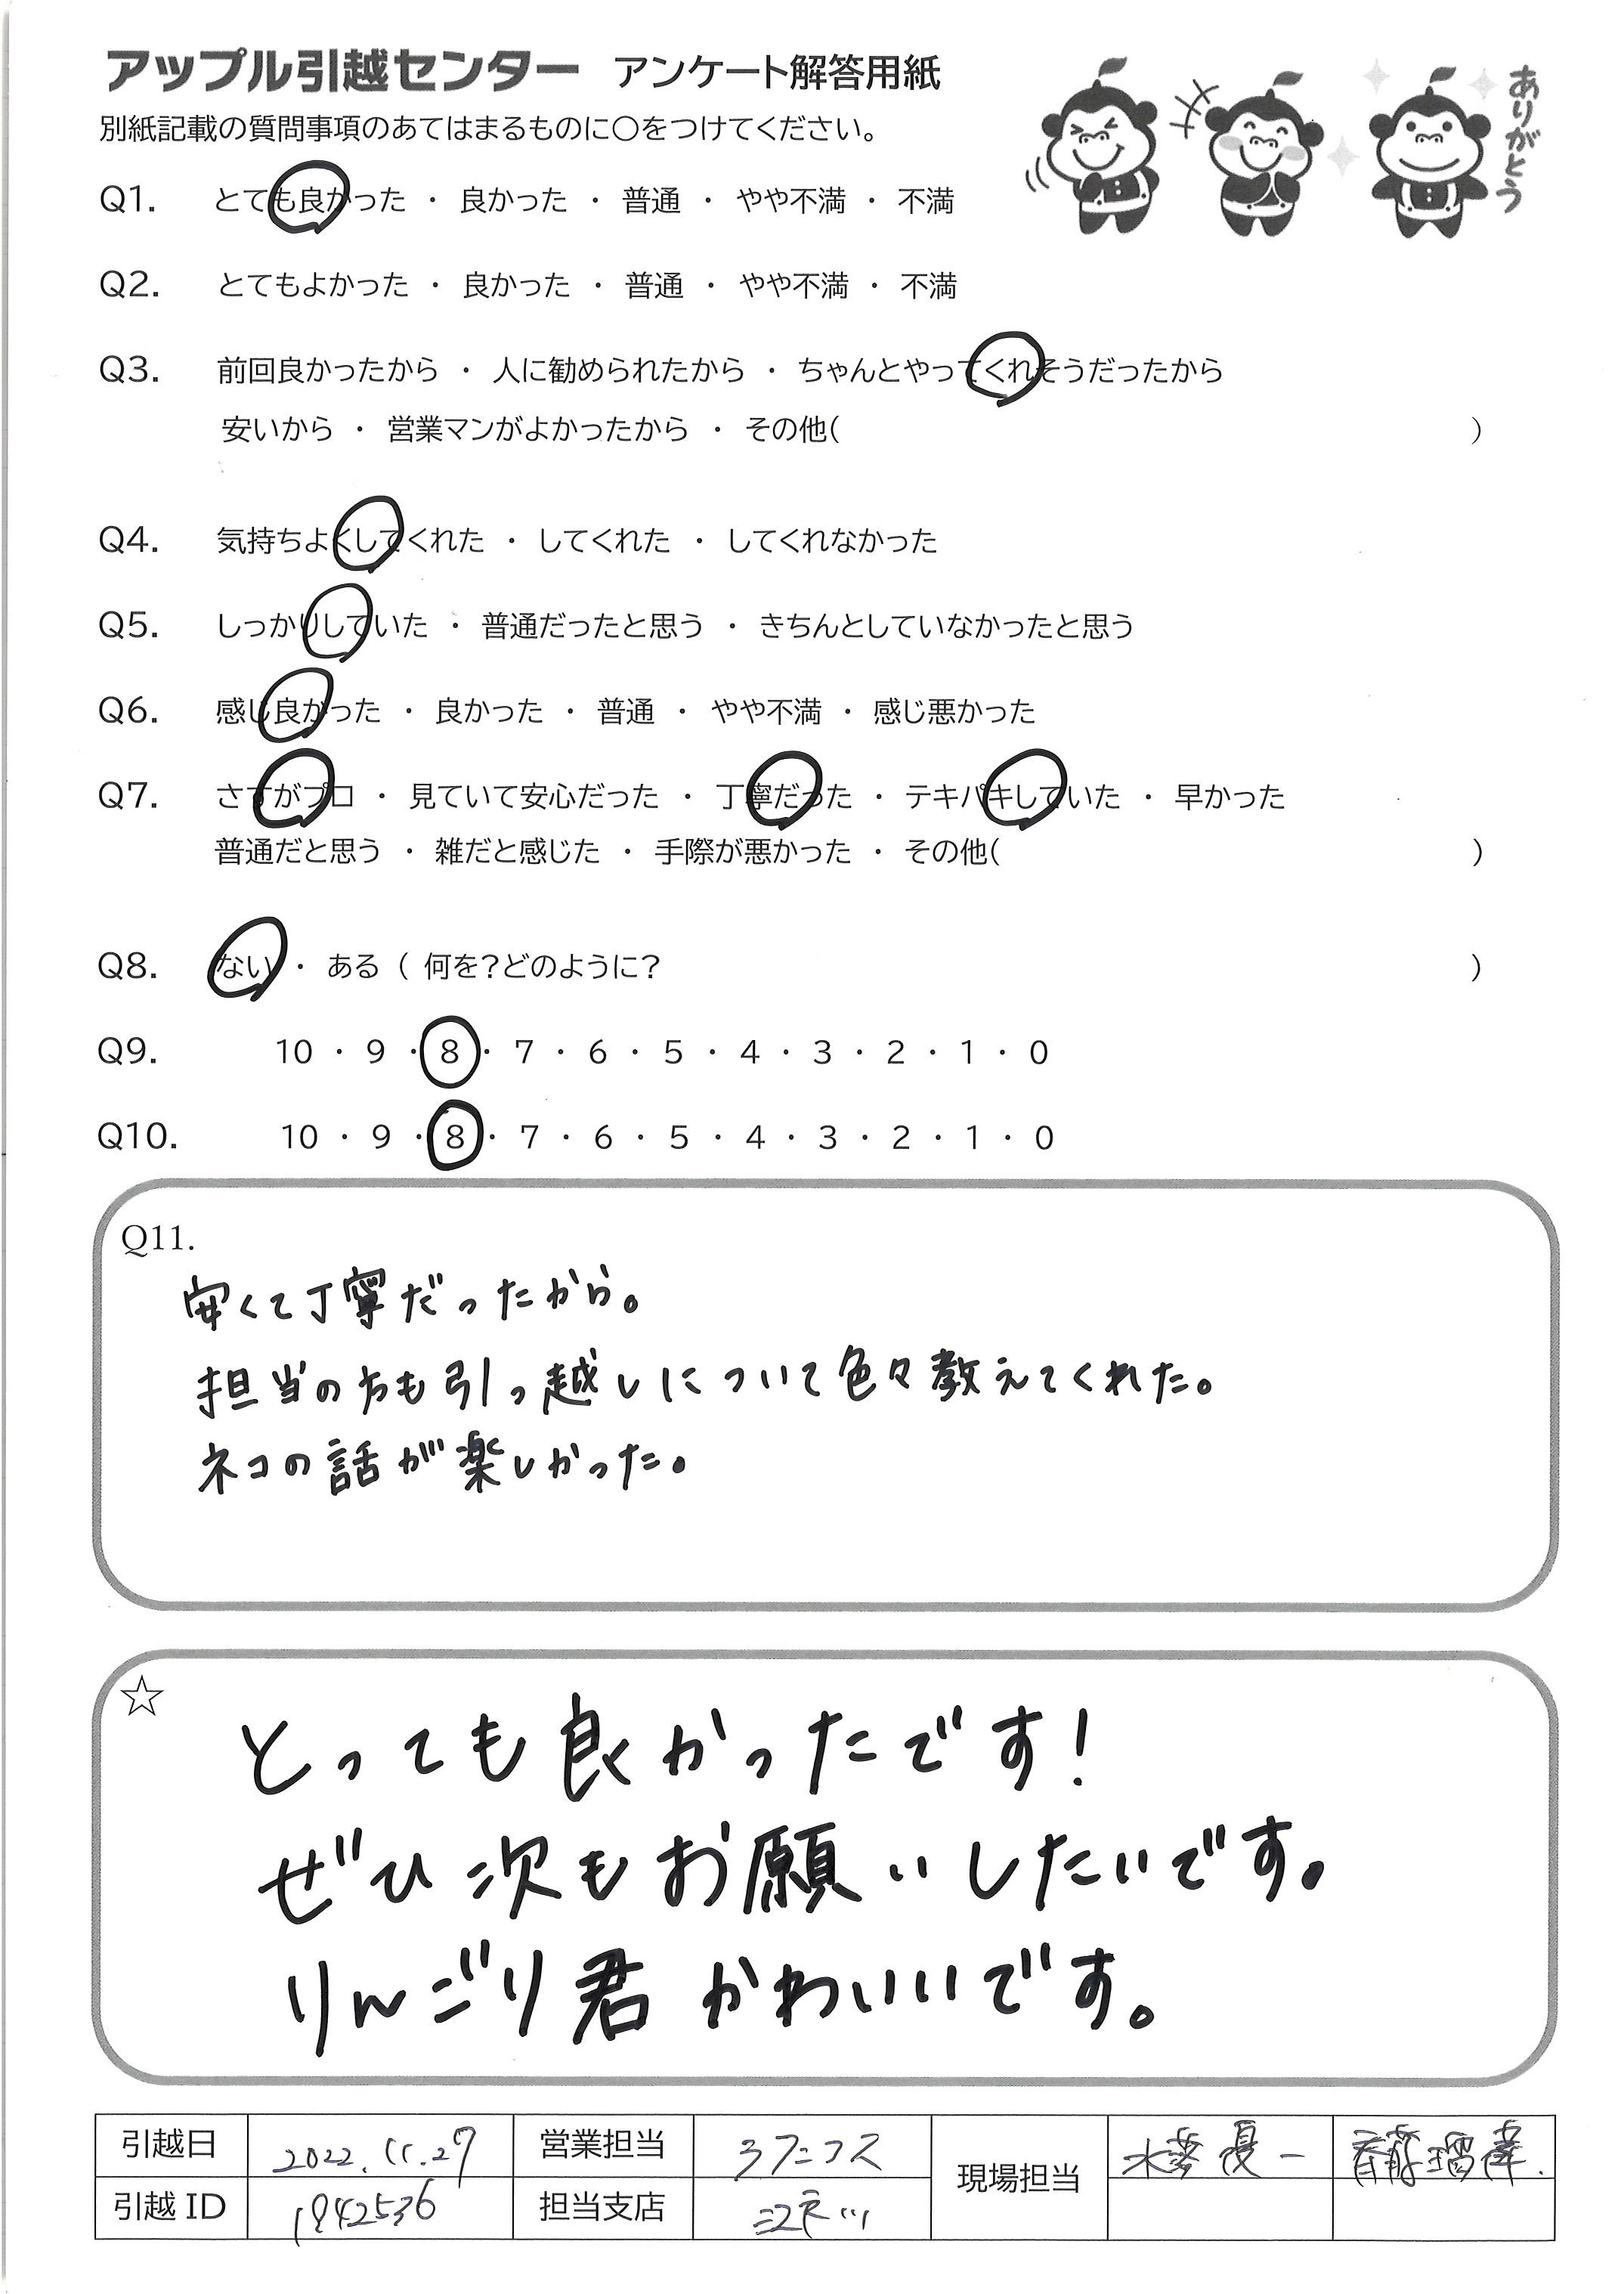 アップル引越センター アンケート解答用紙
ありがとう
別紙記載の質問事項のあてはまるものに○をつけてください。
Q1. とても良かった ・ 良かった ・ 普通 ・ やや不満 ・ 不満
Q2. とてもよかった ・ 良かった ・ 普通 ・ やや不満 ・ 不満
Q3. 前回良かったから ・ 人に勧められたから ・ ちゃんとやってくれそうだったから
安いから ・ 営業マンがよかったから ・ その他( )
Q4. 気持ちよくしてくれた ・ してくれた ・ してくれなかった
Q5. しっかりしていた ・ 普通だったと思う ・ きちんとしていなかったと思う
Q6. 感じ良かった ・ 良かった ・ 普通 ・ やや不満 ・ 感じ悪かった
Q7. さすがプロ ・ 見ていて安心だった ・ 丁寧だった ・ テキパキしていた ・ 早かった
普通だと思う ・ 雑だと感じた ・ 手際が悪かった ・ その他( )
Q8. ない ・ ある ( 何を?どのように? )
Q9. 10 ・ 9 ・ 8 ・ 7 ・ 6 ・ 5 ・ 4 ・ 3 ・ 2 ・ 1 ・ 0
Q10. 10 ・ 9 ・ 8 ・ 7 ・ 6 ・ 5 ・ 4 ・ 3 ・ 2 ・ 1 ・ 0
Q11.
安くて丁寧だったから。
担当の方も引っ越しについて色々教えてくれた。
ネコの話が楽しかった。
☆
とっても良かったです!
ぜひ次もお願いしたいです。
りんごり君かわいいです。
引越日 2022.11.27 営業担当 現場担当
引越ID 1842536 担当支店